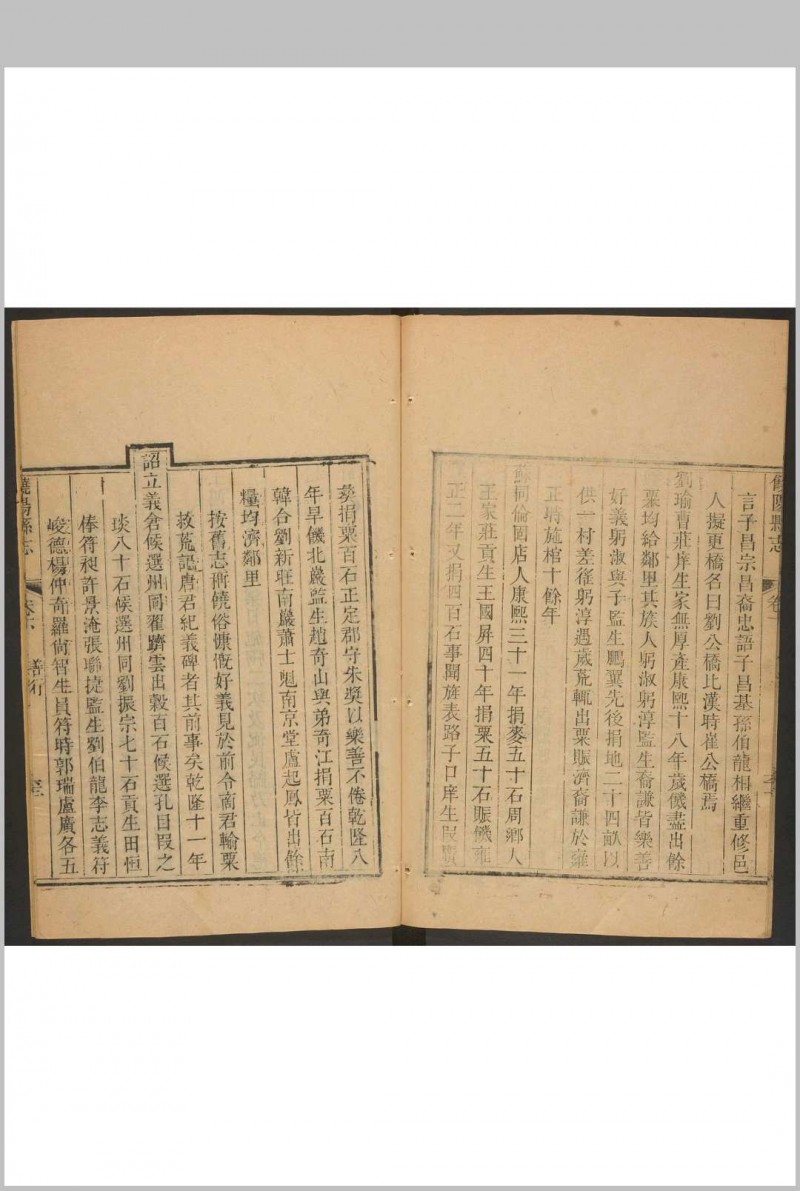 饒陽縣志
卷六
言子昌宗昌裔忠語子昌基孫伯龍相繼重修邑
人擬更橋名曰劉公橋比漢時崔公橋焉
劉瑜曹莊庠生家無厚產康熙十八年歲饑盡出餘
粟均給鄰里其族人躬淑躬淳監生裔謙皆樂善
好義躬淑與子監生鵬翼先後捐地二十四畝以
供一村差徭躬淳遇歲荒輒出粟賑濟裔謙於雍
正時施棺十餘年
蘇桐倫圈店人康熙三十一年捐麥五十石周鄉人
王家莊貢生王國屏四十年捐粟五十石賑饑雍
正二年又捐四百石事聞旌表路子口庠生段
葵捐粟百石正定郡守朱獎以樂善不倦乾隆八
年旱饑北巖監生趙奇山與弟奇江捐粟百石南
韓合劉新旺南巖蕭士魁南京堂盧起鳳皆出餘
糧均濟鄰里
按舊志冊饒俗慷慨好義見於前令南君輸粟
救荒記唐君紀義碑者其前事矣乾隆十一年
詔立義倉候選州同翟躋雲出穀百石候選孔目段之
琰八十石候選州同劉振宗七十石貢生田恒
俸符昶許景淹張聯捷監生劉伯龍李志義符
峻德楊仲奇羅尙智生員符時郭瑞盧廣各五
饒陽縣志
卷六
善行